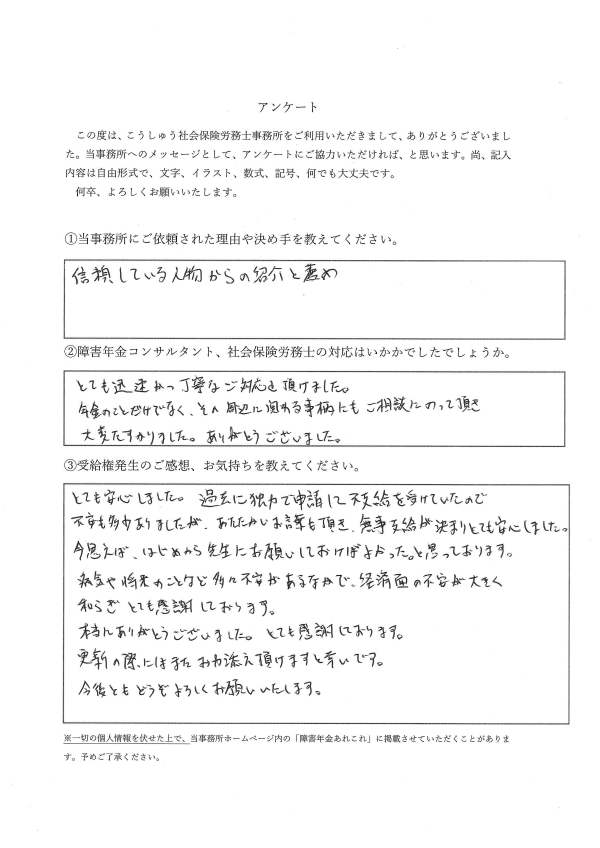 アンケート
この度は、こうしゅう社会保険労務士事務所をご利用いただきまして、ありがとうございまし
た。当事務所へのメッセージとして、アンケートにご協力いただければ、と思います。尚、記入
内容は自由形式で、文字、イラスト、数式、記号、何でも大丈夫です。
何卒、よろしくお願いいたします。
①当事務所にご依頼された理由や決め手を教えてください。
信頼している人物からの紹介と薦め
②障害年金コンサルタント、社会保険労務士の対応はいかかでしたでしょうか。
とても迅速かつ丁寧なご対応を頂けました。
年金のことだけでなく、その周辺に関わる事柄にもご相談にのって頂き
大変たすかりました。ありがとうございました。
③受給権発生のご感想、お気持ちを教えてください。
とても安心しました。過去に独力で申請して不支給を受けていたので
不安も多少ありましたが、あたたかいお言葉も頂き、無事支給が決まりとても安心しました。
今思えば、はじめから先生にお願いしておけばよかった。と思っております。
病気や将来のことなど多々不安があるなかで、経済面の不安が大きく
和らぎとても感謝しております。
本当にありがとうございました。とても感謝しております。
更新の際にはまたお力添え頂けますと幸いです。
今後ともどうぞよろしくお願いいたします。
※一切の個人情報を伏せた上で、当事務所ホームページ内の「障害年金あれこれ」に掲載させていただくことがありま
す。予めご了承ください。